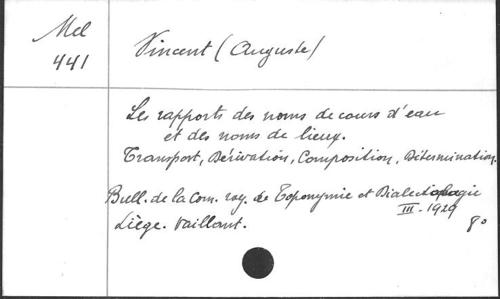 Mel
441
Vincent (Auguste)
Les rapports des noms de cours d'eau
et des noms de lieux.
Transport, Dérivation, Composition, Détermination.
Bull. de la Com. roy. de Toponymie et Dialectologie
III - 1929
Liège. Vaillant.
8°